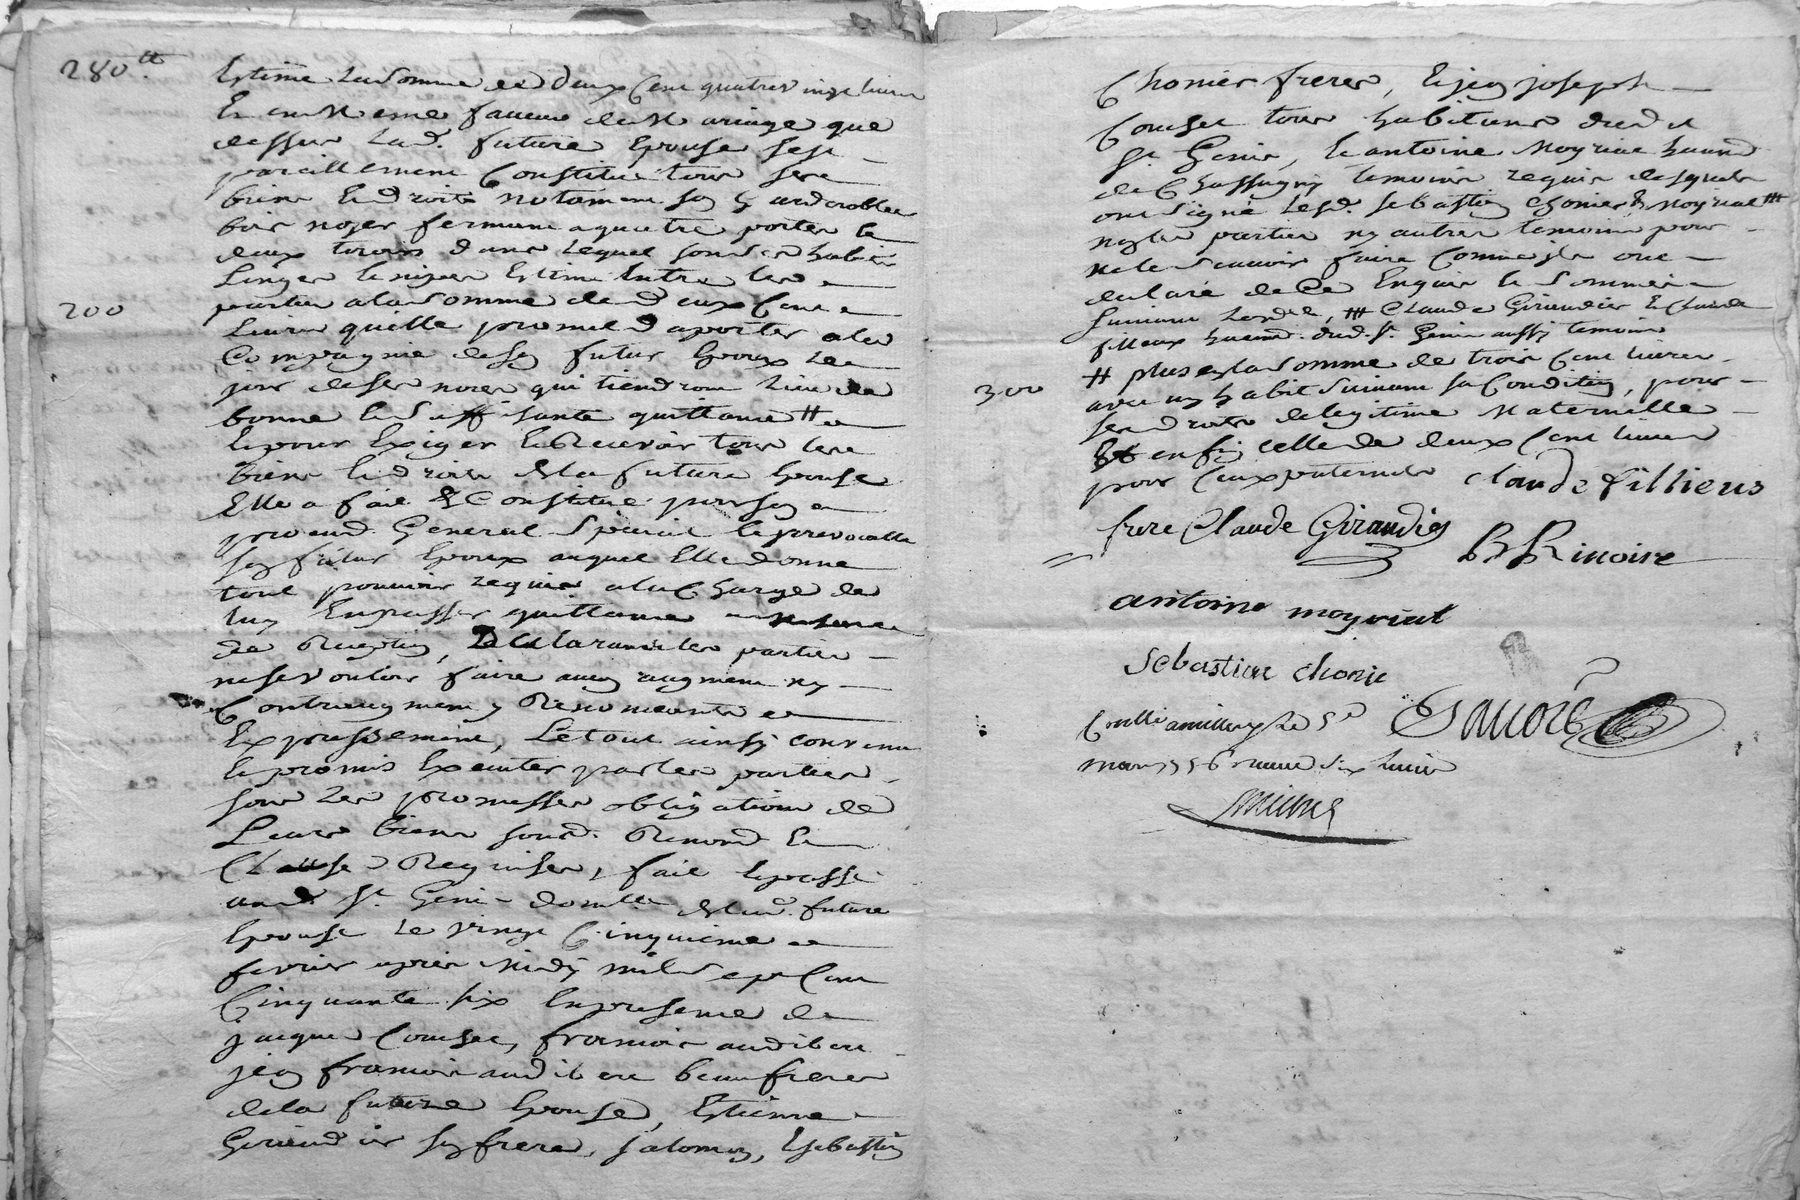 280tt
Estimé la somme de deux Cent quatrevingt livres
Et en mesme faveur de Mariage que
dessus lad. future Epouse sest
pareillement Constitué tous ses
biens et droits notament
bois noyer fermant a quatre portes et
deux tiroirs dans lequel sont ses habits
linges Estimé Entre les
parties a la somme de deux Cent
200
livres quelle promet d'aporter a la
Compagnie de sy futur Epoux le
jour de ses noces qui tiendront lieu de
bonne et suffisante quittance #
Et pour Exiger et Recevoir tous les
biens et droits de la future Epouse
Elle a fait & Constitué pour sy
procureur General Special et irrevocable
sy futur Epoux auquel Elle donne
tout pouvoir requis a la Charge de
luy En passer quittance
de Reception, Declarant les parties
ne se vouloir faire aucun augment ny
Contreaugment y Renonceants
Expressement, Le tout ainsy convenu
et promis Executer par les parties
sous les promesses obligations de
Leurs biens sousd. Renond. et
Clause Requises, fait et passé
aud. St. Genis domlle de lad. future
Epouse Le vingt Cinquieme
fevrier apres Midy mil sept Cent
Cinquante six En presence de
jacques Couset, francois audibert
jean francois audibert beaufreres
de la future Epouse, Estienne
Giraudier sy frere, Salomon, Et sebastien
Chonier freres, Et jean joseph
Couset tous habitans dud
St. Genis, Et antoine Moyriat
de Chassagny temoins requis desquels
ont signé lesd. sebastien Chonier & Moyriat ttt
non les parties ny autres temoins pour
ne le scavoir faire Comme ils ont
declaré de Ce Enquis et Sommés
Suivant Lordce, ttt Claude Giraudier Et Claude
fillieux dud. St. Genis aussy temoins
# plus Est la somme de trois Cent livres
300
avec un habit suivant sa Condition, pour
ses droits de legitime Maternelle
Et enfin celle de deux Cent livres
pour Ceux paternels Claude fillieus
frere Claude Giraudier
B Rinoire
antoine moyriat
Sebastien chonie
Conllé a millery Le 5e
mars 1756 Receu six livres